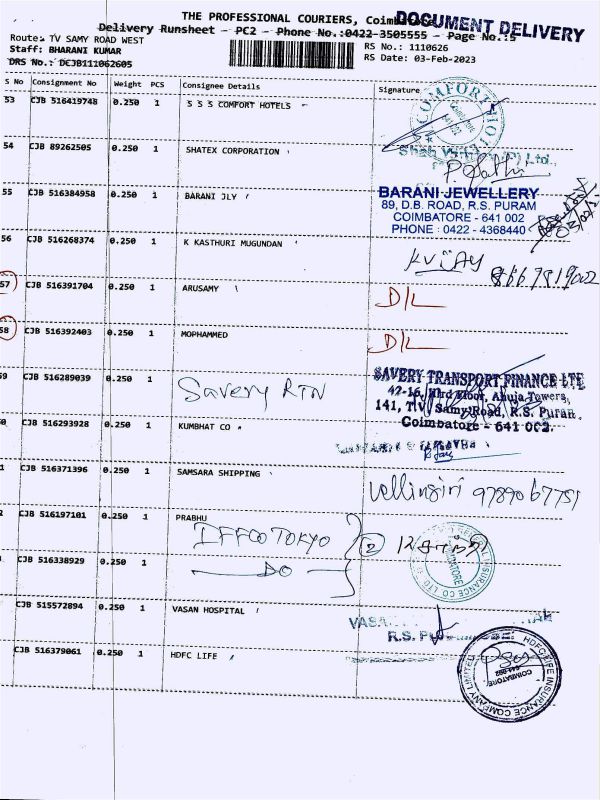 THE PROFESSIONAL COURIERS, Coimbatore
DOCUMENT DELIVERY
Delivery Runsheet - PC2 - Phone No.:0422-3505555 - Page No.:5
Route: TV SAMY ROAD WEST
RS No.: 1110626
Staff: BHARANI KUMAR
RS Date: 03-Feb-2023
DRS No.: DCJB111062605
S No Consignment No Weight PCS Consignee Details Signature
53 CJB 516419748 0.250 1 S S S COMFORT HOTELS
COMFORT HOTE
54 CJB 89262505 0.250 1 SHATEX CORPORATION
55 CJB 516384958 0.250 1 BARANI JLY
BARANI JEWELLERY
89, D.B. ROAD, R.S. PURAM
COIMBATORE - 641 002
PHONE : 0422 - 4368440
56 CJB 516268374 0.250 1 K KASTHURI MUGUNDAN
KVIJAY
8667819002
57 CJB 516391704 0.250 1 ARUSAMY
D/L
58 CJB 516392403 0.250 1 MOPHAMMED
D/L
9 CJB 516289039 0.250 1 Savery RTN
SAVERY TRANSPORT FINANCE LTD
42-16, IIIrd Floor, Ahuja Towers,
141, T.V. Samy Road, R.S. Puram
Coimbatore - 641 002.
0 CJB 516293928 0.250 1 KUMBHAT CO
1 CJB 516371396 0.250 1 SAMSARA SHIPPING
Vellingiri 9789067751
2 CJB 516197101 0.250 1 PRABHU
IFFCO TOKYO
2
CJB 516338929 0.250 1 DO
INSURANCE CO LTD
CJB 515572894 0.250 1 VASAN HOSPITAL
CJB 516379061 0.250 1 HDFC LIFE
HDFC LIFE INSURANCE COMPANY LIMITED
COIMBATORE